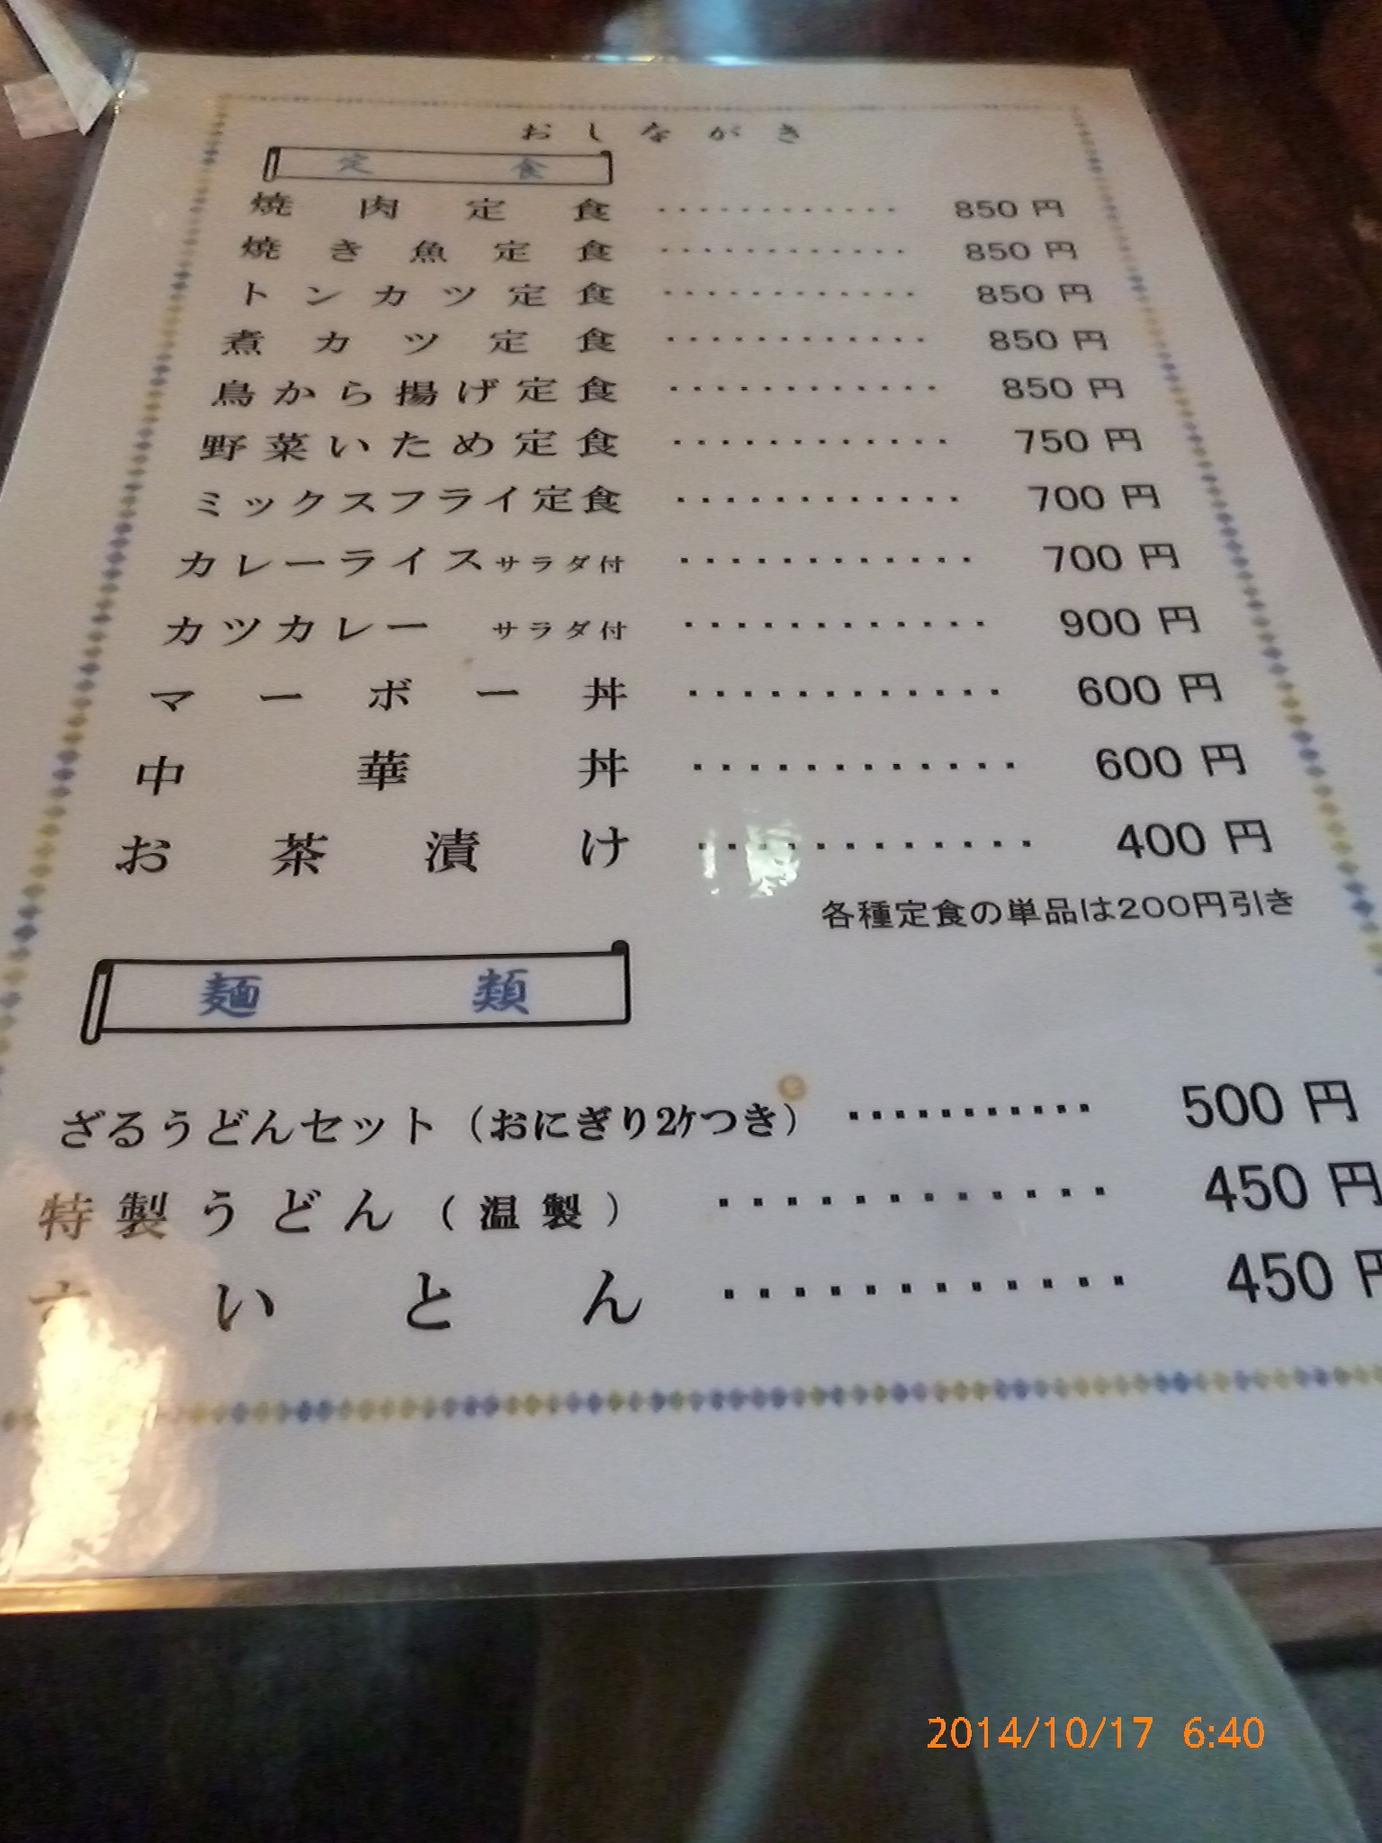 おしながき
定食
焼肉定食 ············ 850円
焼き魚定食 ············ 850円
トンカツ定食 ············ 850円
煮カツ定食 ············ 850円
鳥から揚げ定食 ············ 850円
野菜いため定食 ············ 750円
ミックスフライ定食 ············ 700円
カレーライスサラダ付 ············ 700円
カツカレー サラダ付 ············ 900円
マーボー丼 ············ 600円
中華丼 ············ 600円
お茶漬け ············ 400円
各種定食の単品は200円引き
麺類
ざるうどんセット(おにぎり2ケつき) ············ 500円
特製うどん(温製) ············ 450円
すいとん ············ 450円
2014/10/17 6:40